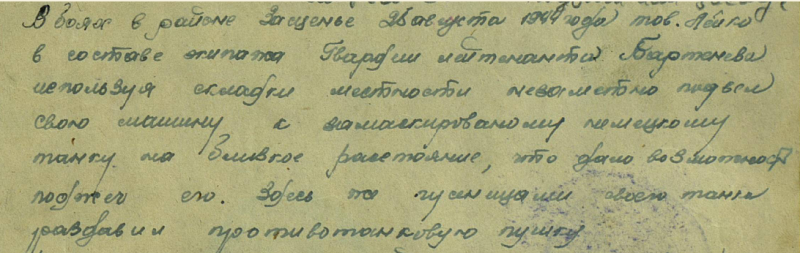 В боях в районе Засценье 28 августа 1944 года тов. Лейко
в составе экипажа Гвардии лейтенанта Бартенева
используя складки местности незаметно подвел
свою машину к замаскированому немецкому
танку на близкое расстояние, что дало возможность
поджеч его. Здесь же гусеницами своего танка
раздавил противотанковую пушку